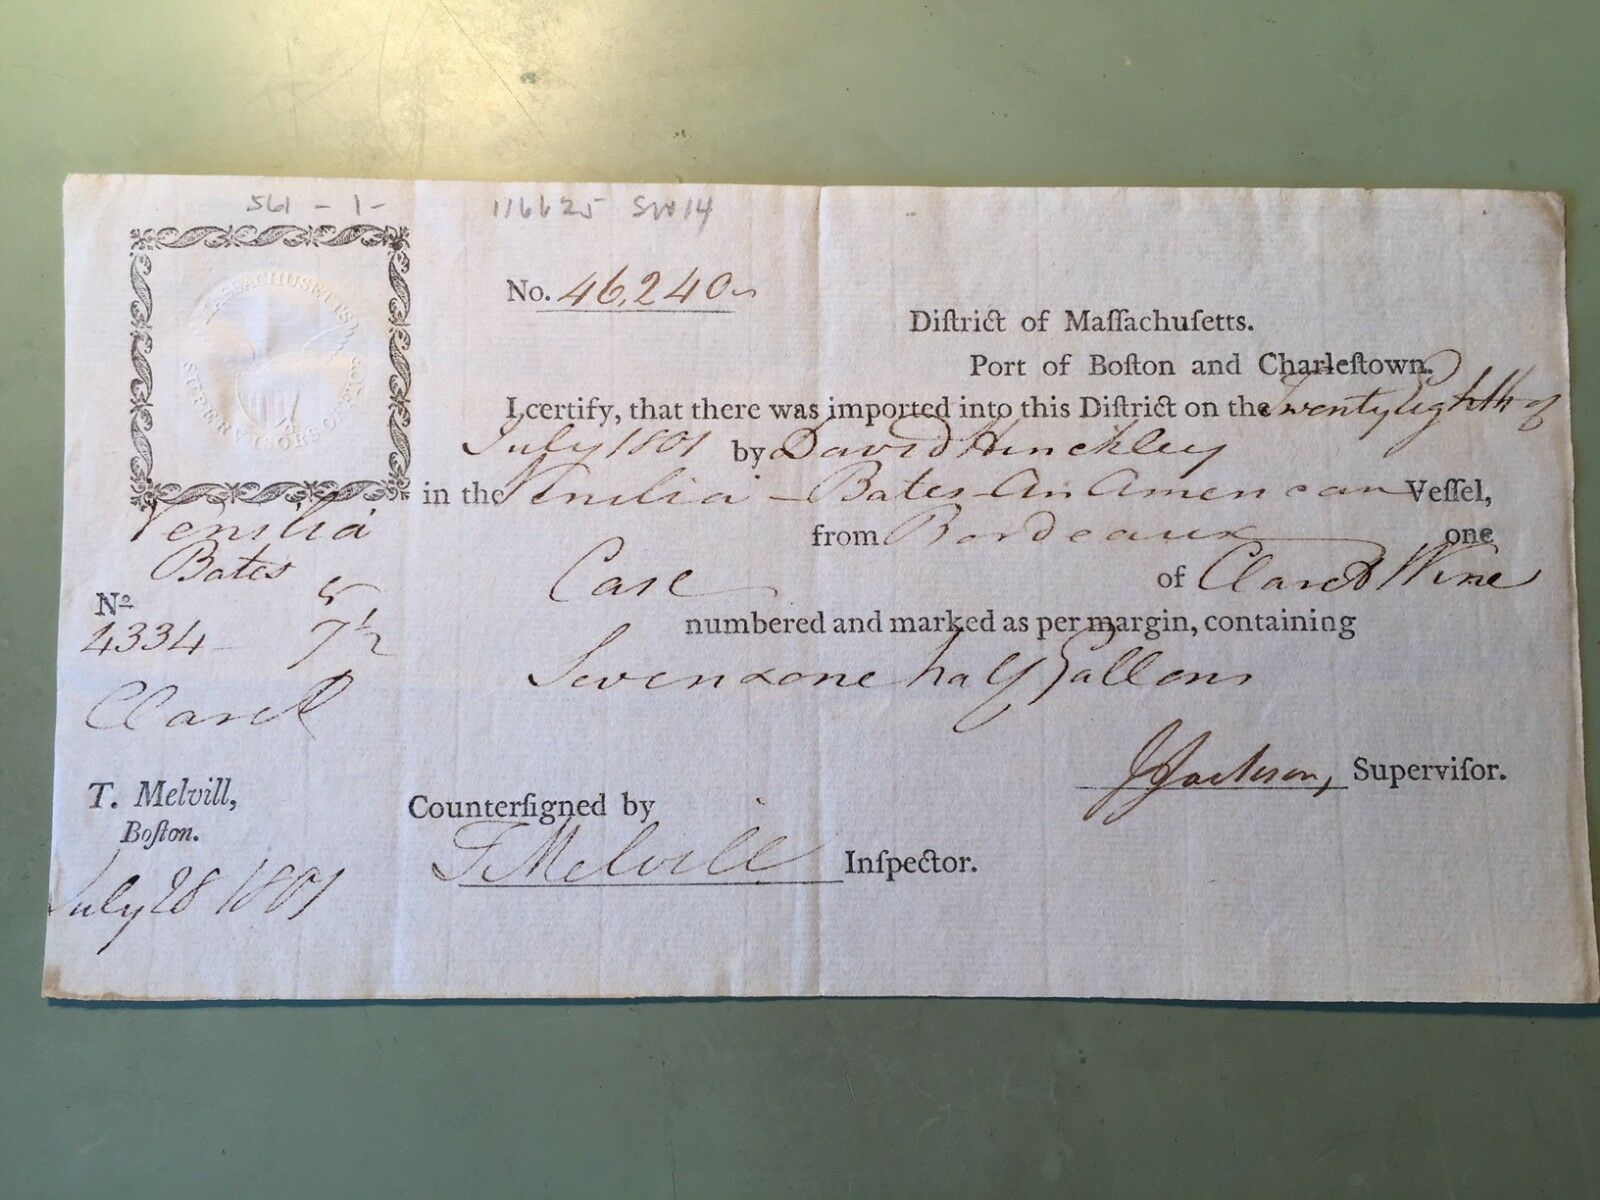 561 - 1 -
116625
MASSACHUSETTS
SUPERVISORS OFFICE
No. 46,240
Diſtrict of Maſſachuſetts.
Port of Boſton and Charleſtown.
I certify, that there was imported into this Diſtrict on the Twenty Eighth of
July 1801 by David Hinckley
in the - Bates - An American Veſſel,
from Bordeaux one
Case of Claret Wine
numbered and marked as per margin, containing
Seven & one half Gallons
J Jackson, Superviſor.
Counterſigned by
T Melvill Inſpector.
Bates
No
4334 - 7 1/2
Claret
T. Melvill,
Boſton.
July 28 1801